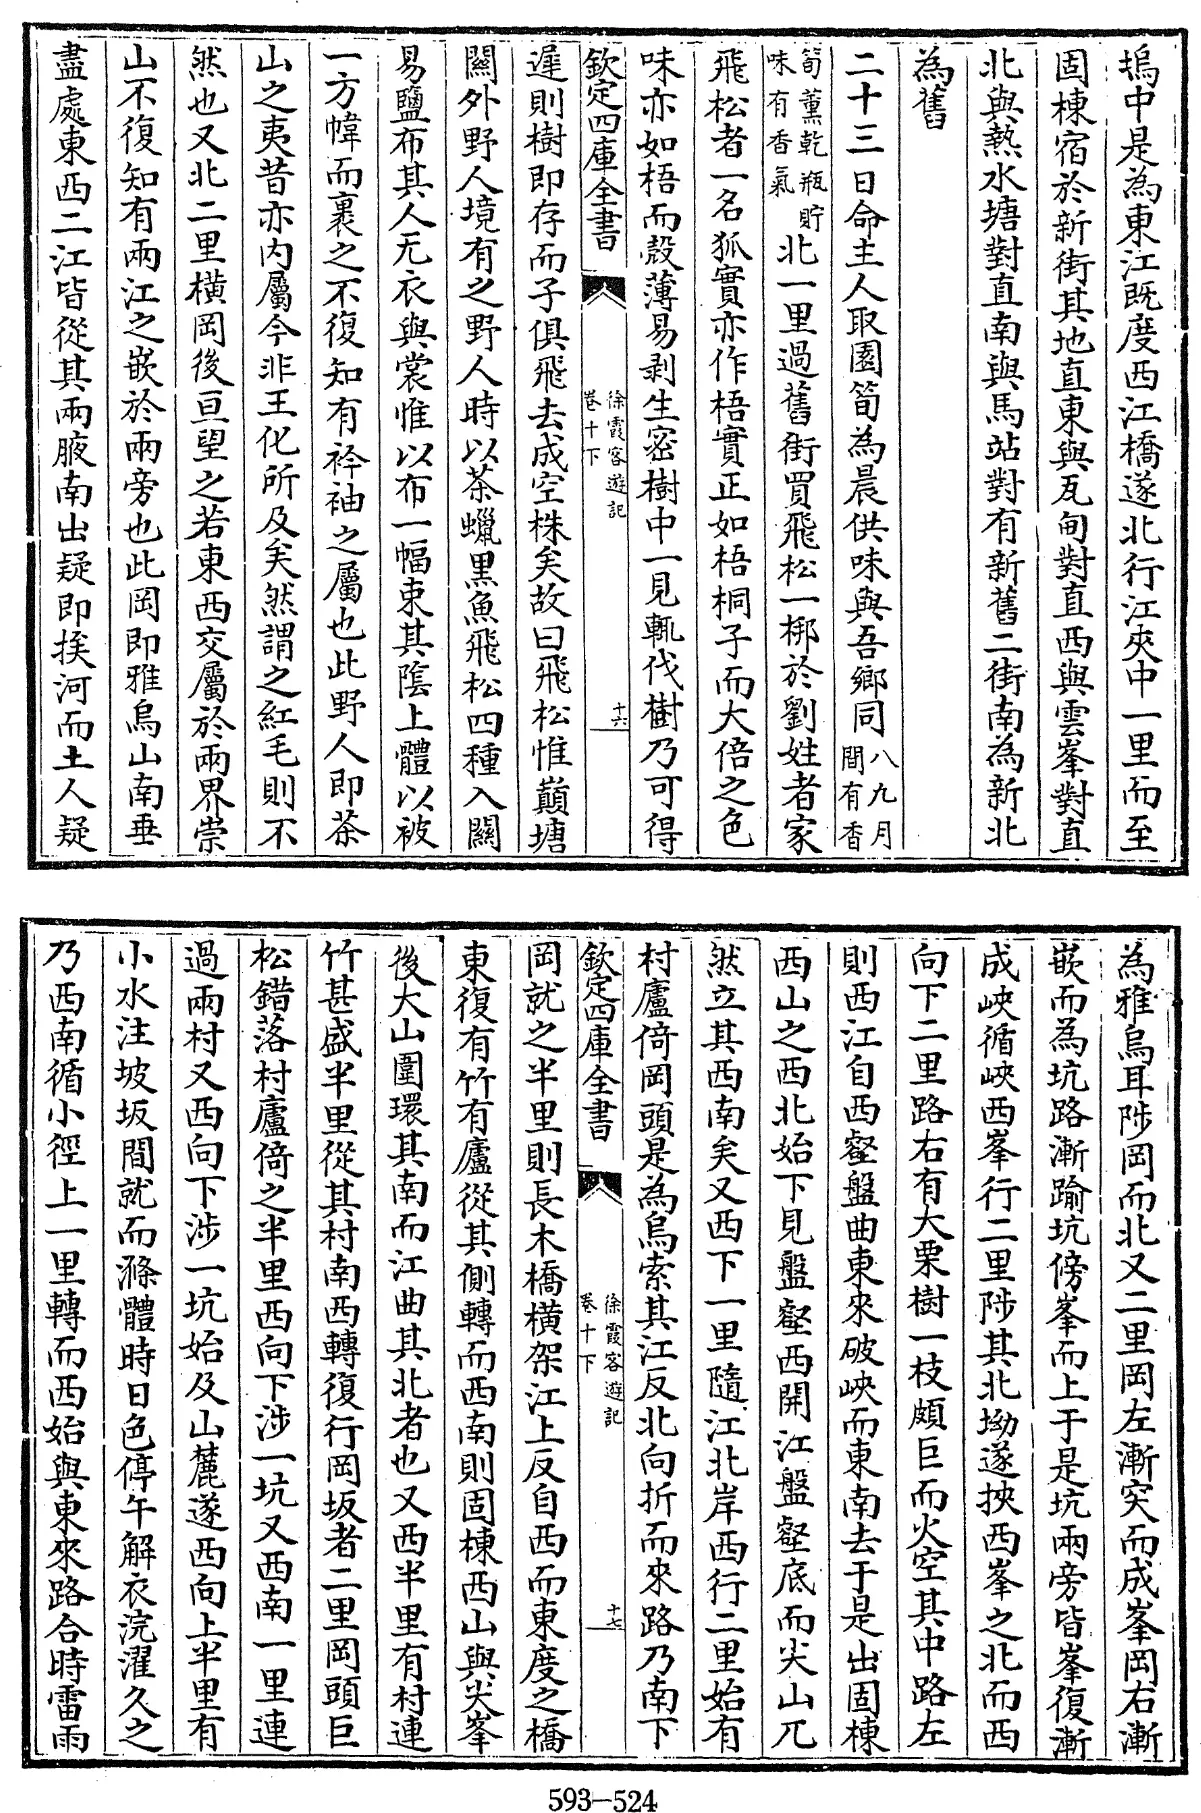 塢中是為東江既度西江橋遂北行江夾中一里而至
固棟宿於新街其地直東與瓦甸對直西與雲峯對直
北與熱水塘對直南與馬站對有新舊二街南為新北
為舊
二十三日命主人取園筍為晨供味與吾鄉同八九月
間有香
筍薰乾瓶貯
味有香氣北一里過舊街買飛松一梆於劉姓者家
飛松者一名狐實亦作梧實正如梧桐子而大倍之色
味亦如梧而殼薄易剥生密樹中一見輒伐樹乃可得
欽定四庫全書
徐霞客遊記
卷十下
十六
遲則樹即存而子俱飛去成空株矣故曰飛松惟巔塘
關外野人境有之野人時以茶蠟黒魚飛松四種入關
易鹽布其人无衣與裳惟以布一幅束其陰上體以被
一方幃而裹之不復知有衿袖之屬也此野人即茶
山之夷昔亦内屬今非王化所及矣然謂之紅毛則不
然也又北二里横岡後亘望之若東西交屬於兩界崇
山不復知有兩江之嵌於兩旁也此岡即雅烏山南垂
盡處東西二江皆從其兩腋南出疑即挨河而土人疑
為雅烏耳陟岡而北又二里岡左漸突而成峯岡右漸
嵌而為坑路漸踰坑傍峯而上于是坑兩旁皆峯復漸
成峽循峽西峯行二里陟其北坳遂挾西峯之北而西
向下二里路右有大栗樹一枝頗巨而火空其中路左
則西江自西壑盤曲東來破峽而東南去于是出固棟
西山之西北始下見盤壑西開江盤壑底而尖山兀
然立其西南矣又西下一里隨江北岸西行二里始有
村廬倚岡頭是為烏索其江反北向折而來路乃南下
欽定四庫全書
徐霞客遊記
卷十下
十七
岡就之半里則長木橋横架江上反自西而東度之橋
東復有竹有廬從其側轉而西南則固棟西山與尖峯
後大山圍環其南而江曲其北者也又西半里有村連
竹甚盛半里從其村南西轉復行岡坂者二里岡頭巨
松錯落村廬倚之半里西向下涉一坑又西南一里連
過兩村又西向下涉一坑始及山麓遂西向上半里有
小水注坡坂間就而滌體時日色停午解衣浣濯久之
乃西南循小徑上一里轉而西始與東來路合時雷雨
593-524